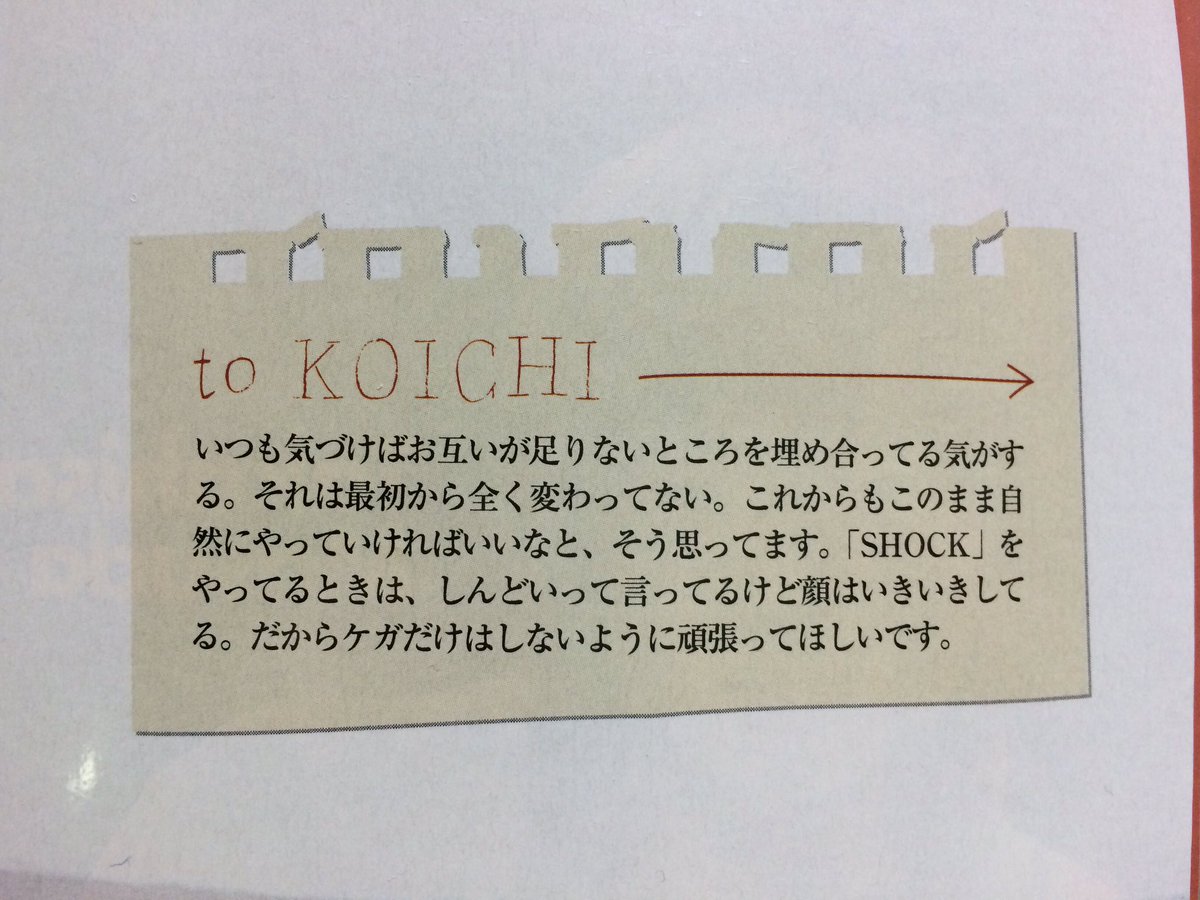 to KOICHI
いつも気づけばお互いが足りないところを埋め合ってる気がす
る。それは最初から全く変わってない。これからもこのまま自
然にやっていければいいなと、そう思ってます。「SHOCK」を
やってるときは、しんどいって言ってるけど顔はいきいきして
る。だからケガだけはしないように頑張ってほしいです。